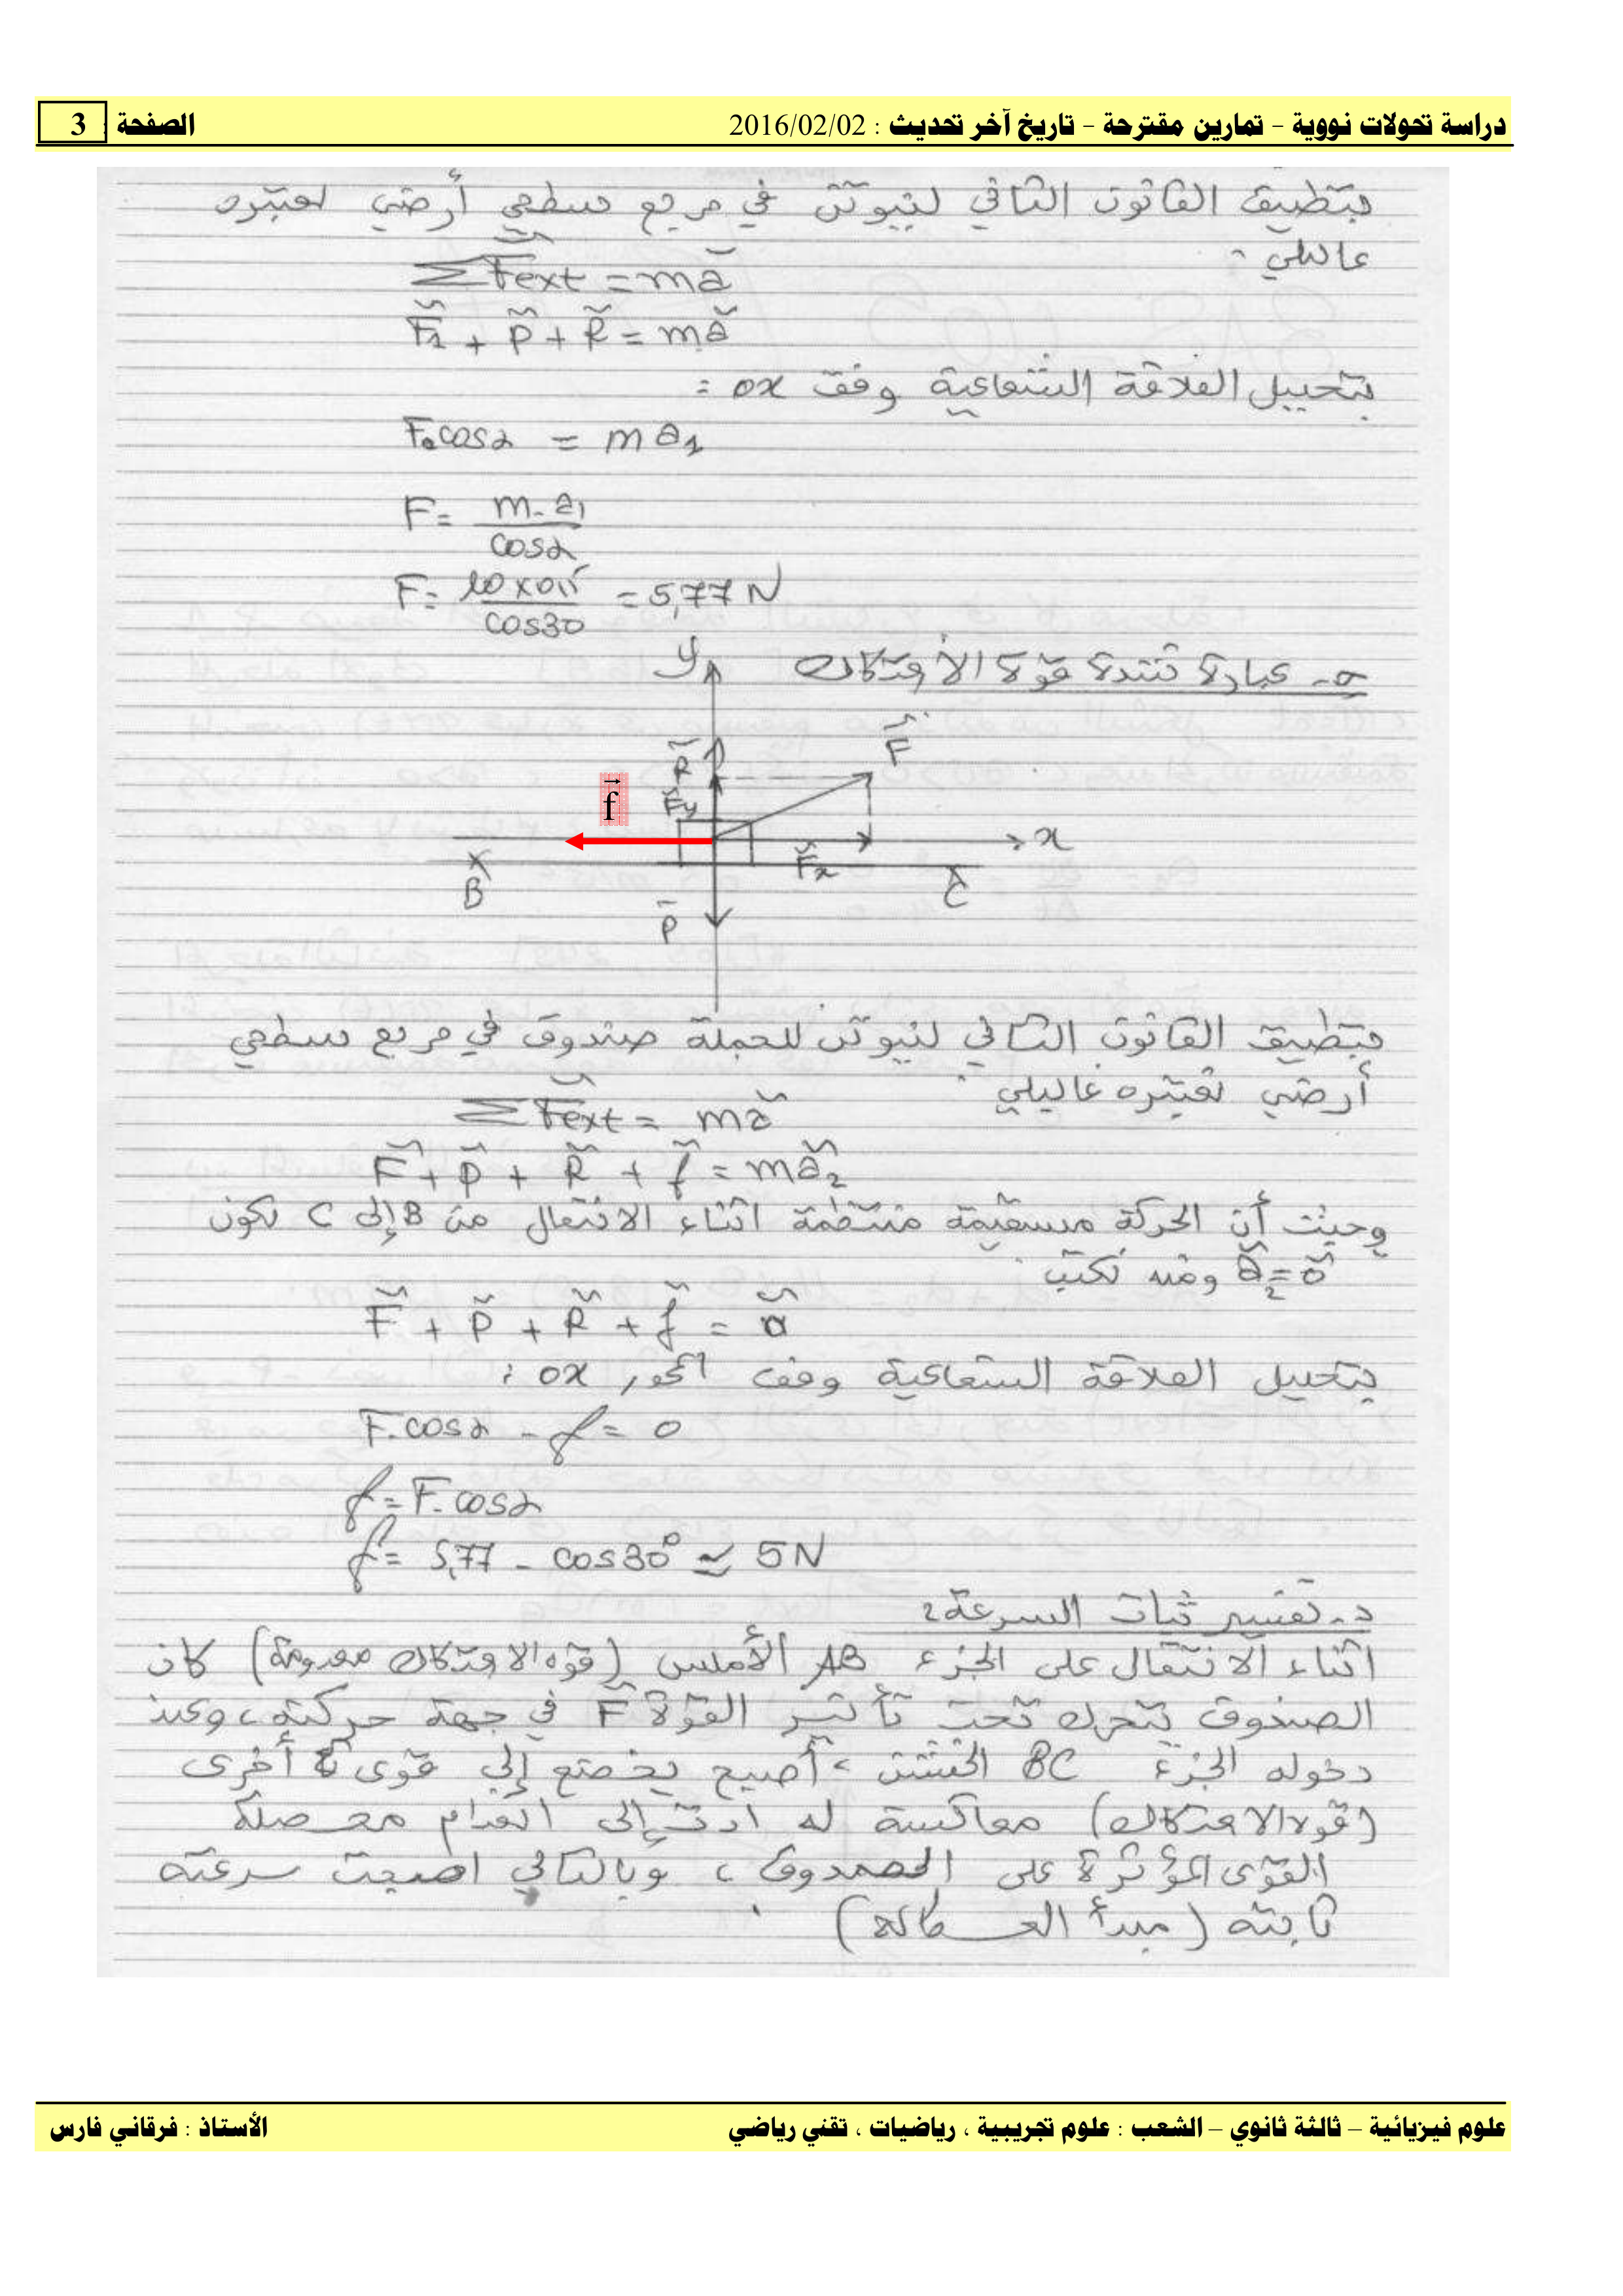 دراسة تحولات نووية – تمارين مقترحة – تاريخ آخر تحديث : 2016/02/02 الصفحة : 3
بتطبيق القانون الثاني لنيوتن في مرجع سطحي أرضي نعتبره
غاليلي :
ΣF⃗ext = ma⃗
F⃗1 + P⃗ + R⃗ = ma⃗
بتحليل العلاقة الشعاعية وفق ox :
F.cosα = m a1
F = m.a1 / cosα
F = 10×0,5 / cos30 = 5,77 N
عبارة شدة قوة الاحتكاك
y
F⃗
R⃗
f⃗
F⃗y
x
F⃗x
B
C
P⃗
بتطبيق القانون الثاني لنيوتن للجملة صندوق في مرجع سطحي
أرضي نعتبره غاليلي :
ΣF⃗ext = ma⃗
F⃗ + P⃗ + R⃗ + f⃗ = ma⃗2
وحيث أن الحركة مستقيمة منتظمة اثناء الانتقال من B إلى C تكون
a⃗2 = o⃗ ومنه نكتب :
F⃗ + P⃗ + R⃗ + f⃗ = o⃗
بتحليل العلاقة الشعاعية وفق المحور ox :
F.cosα - f = 0
f = F.cosα
f = 5,77 - cos30° ≃ 5N
د- تفسير ثبات السرعة :
اثناء الانتقال على الجزء AB الأملس (قوة الاحتكاك معدومة) كان
الصندوق يتحرك تحت تأثير القوة F⃗ في جهة حركته، وعند
دخوله الجزء BC الخشن، أصبح يخضع إلى قوى أخرى
(قوة الاحتكاك) معاكسة له ادت إلى انعدام محصلة
القوى المؤثرة على الصندوق، وبالتالي اصبحت سرعته
ثابتة (مبدأ العطالة).
علوم فيزيائية – ثالثة ثانوي – الشعب : علوم تجريبية ، رياضيات ، تقني رياضي الأستاذ : فرقاني فارس